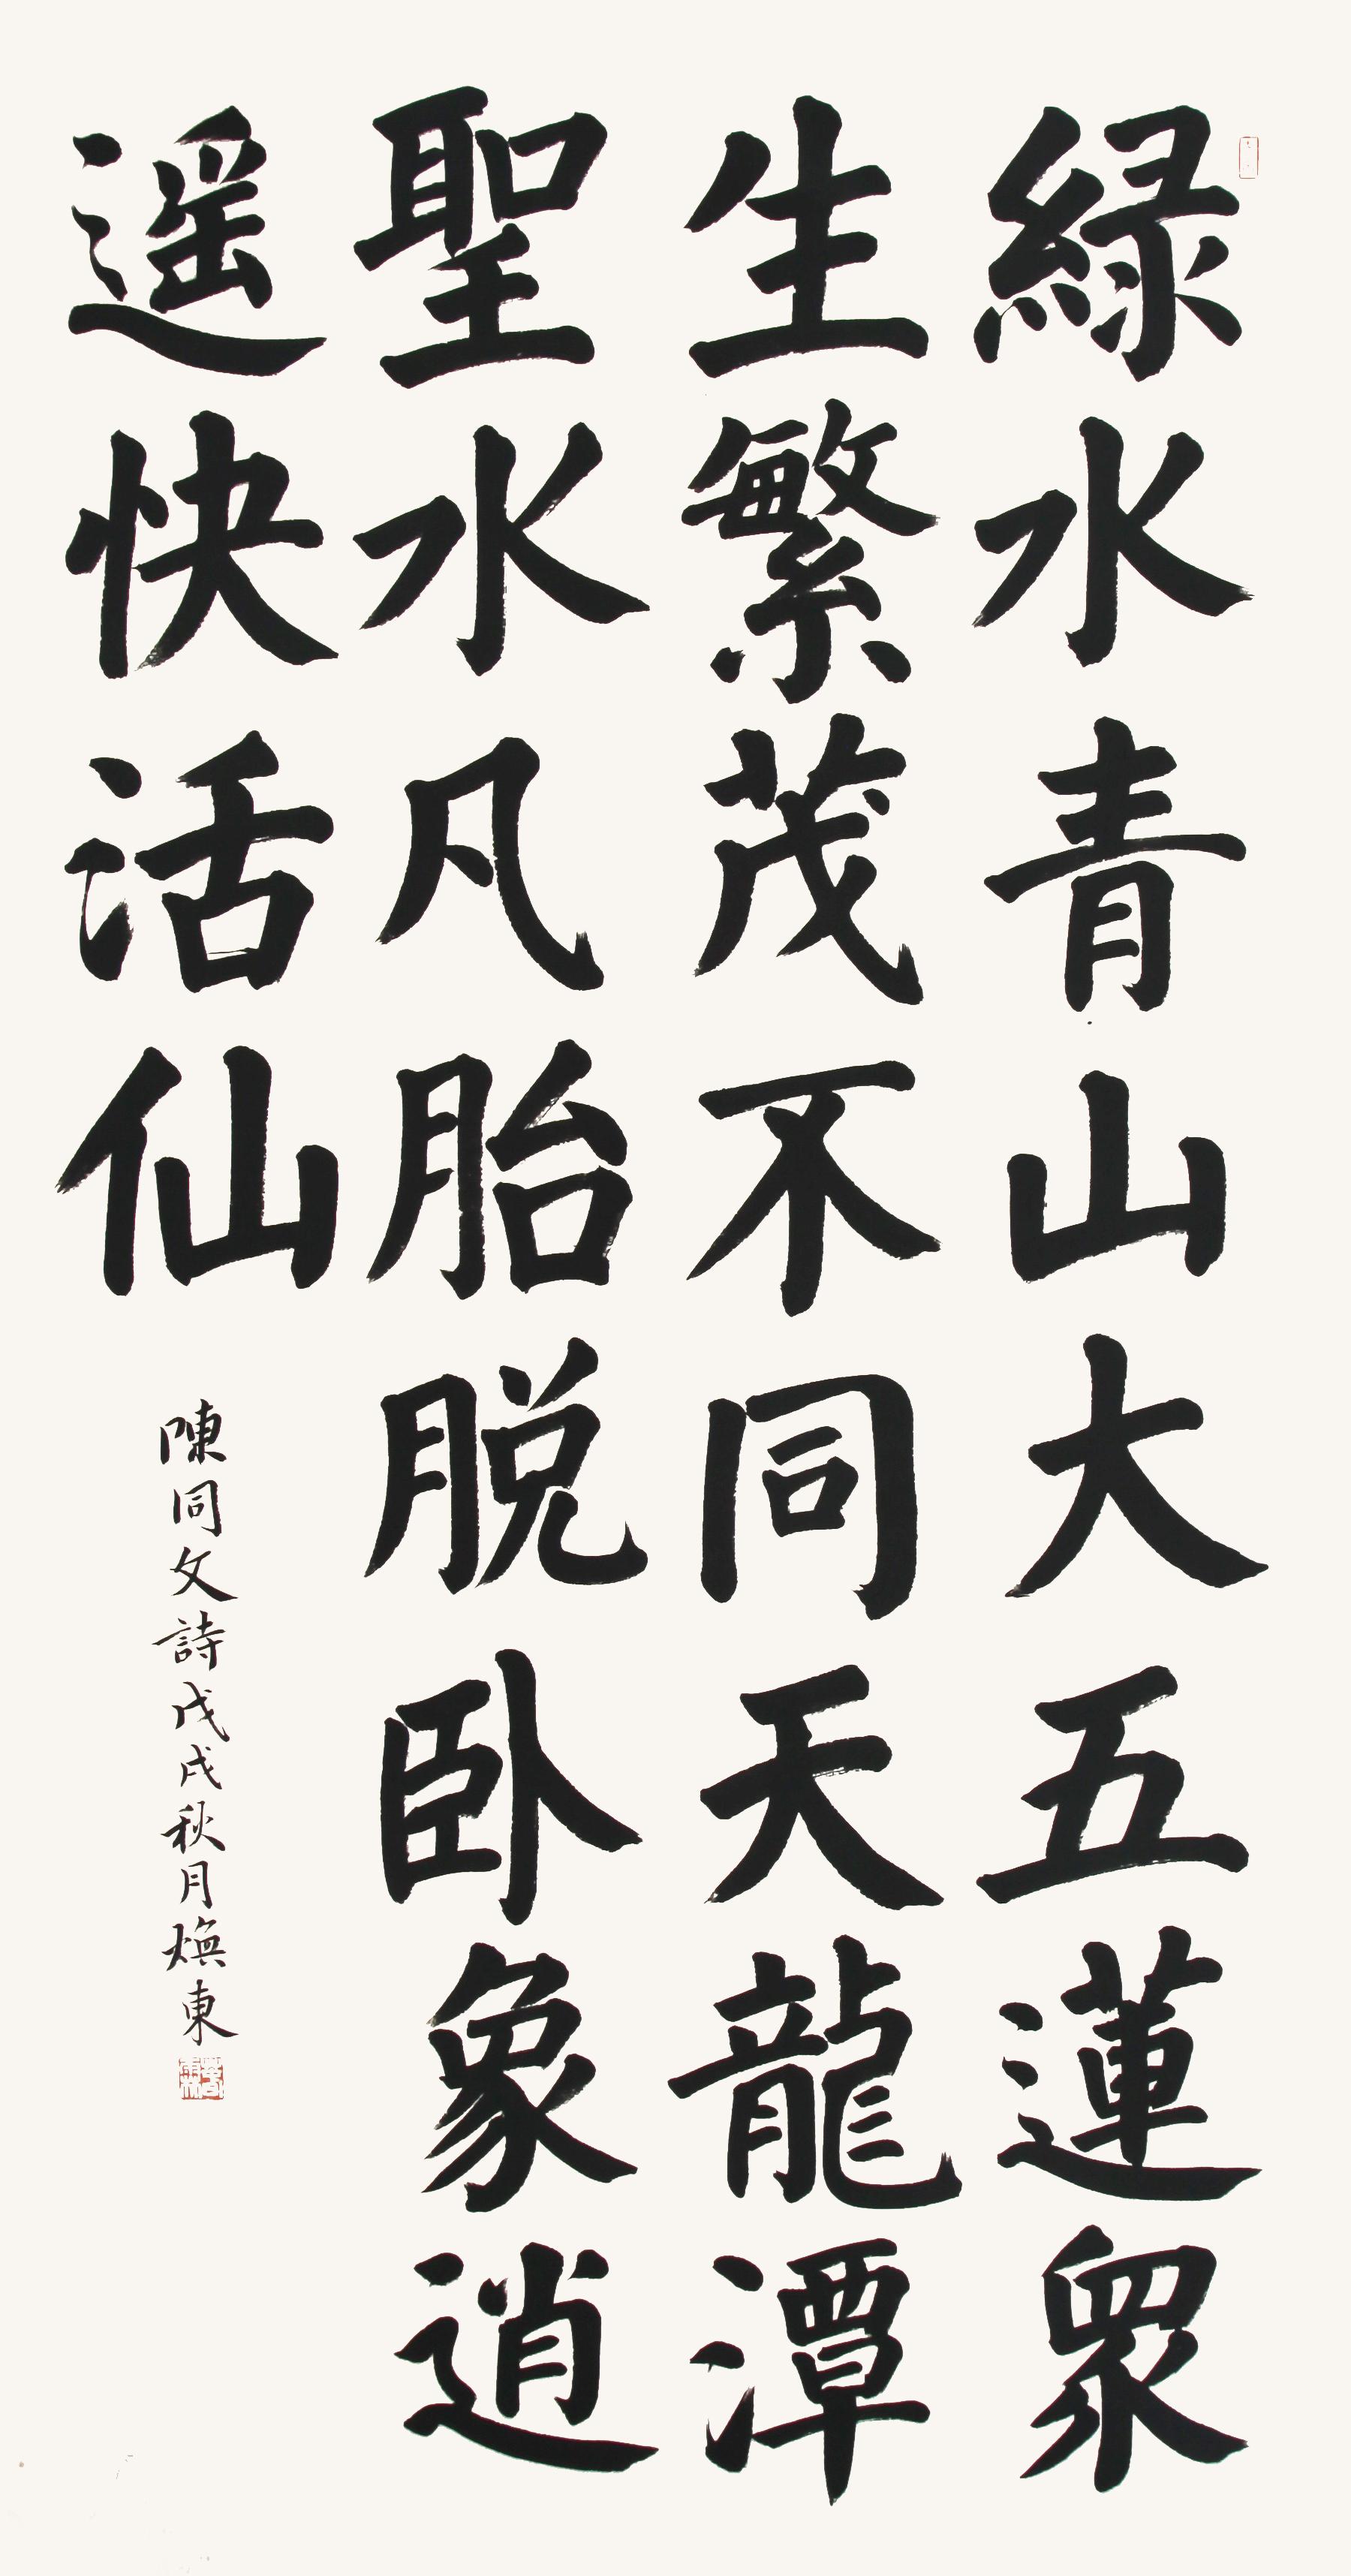 緑水青山大五蓮眾
生繁茂不同天龍潭
聖水凡胎脱卧象逍
遥快活仙
陳同文詩戊戌秋月煥東